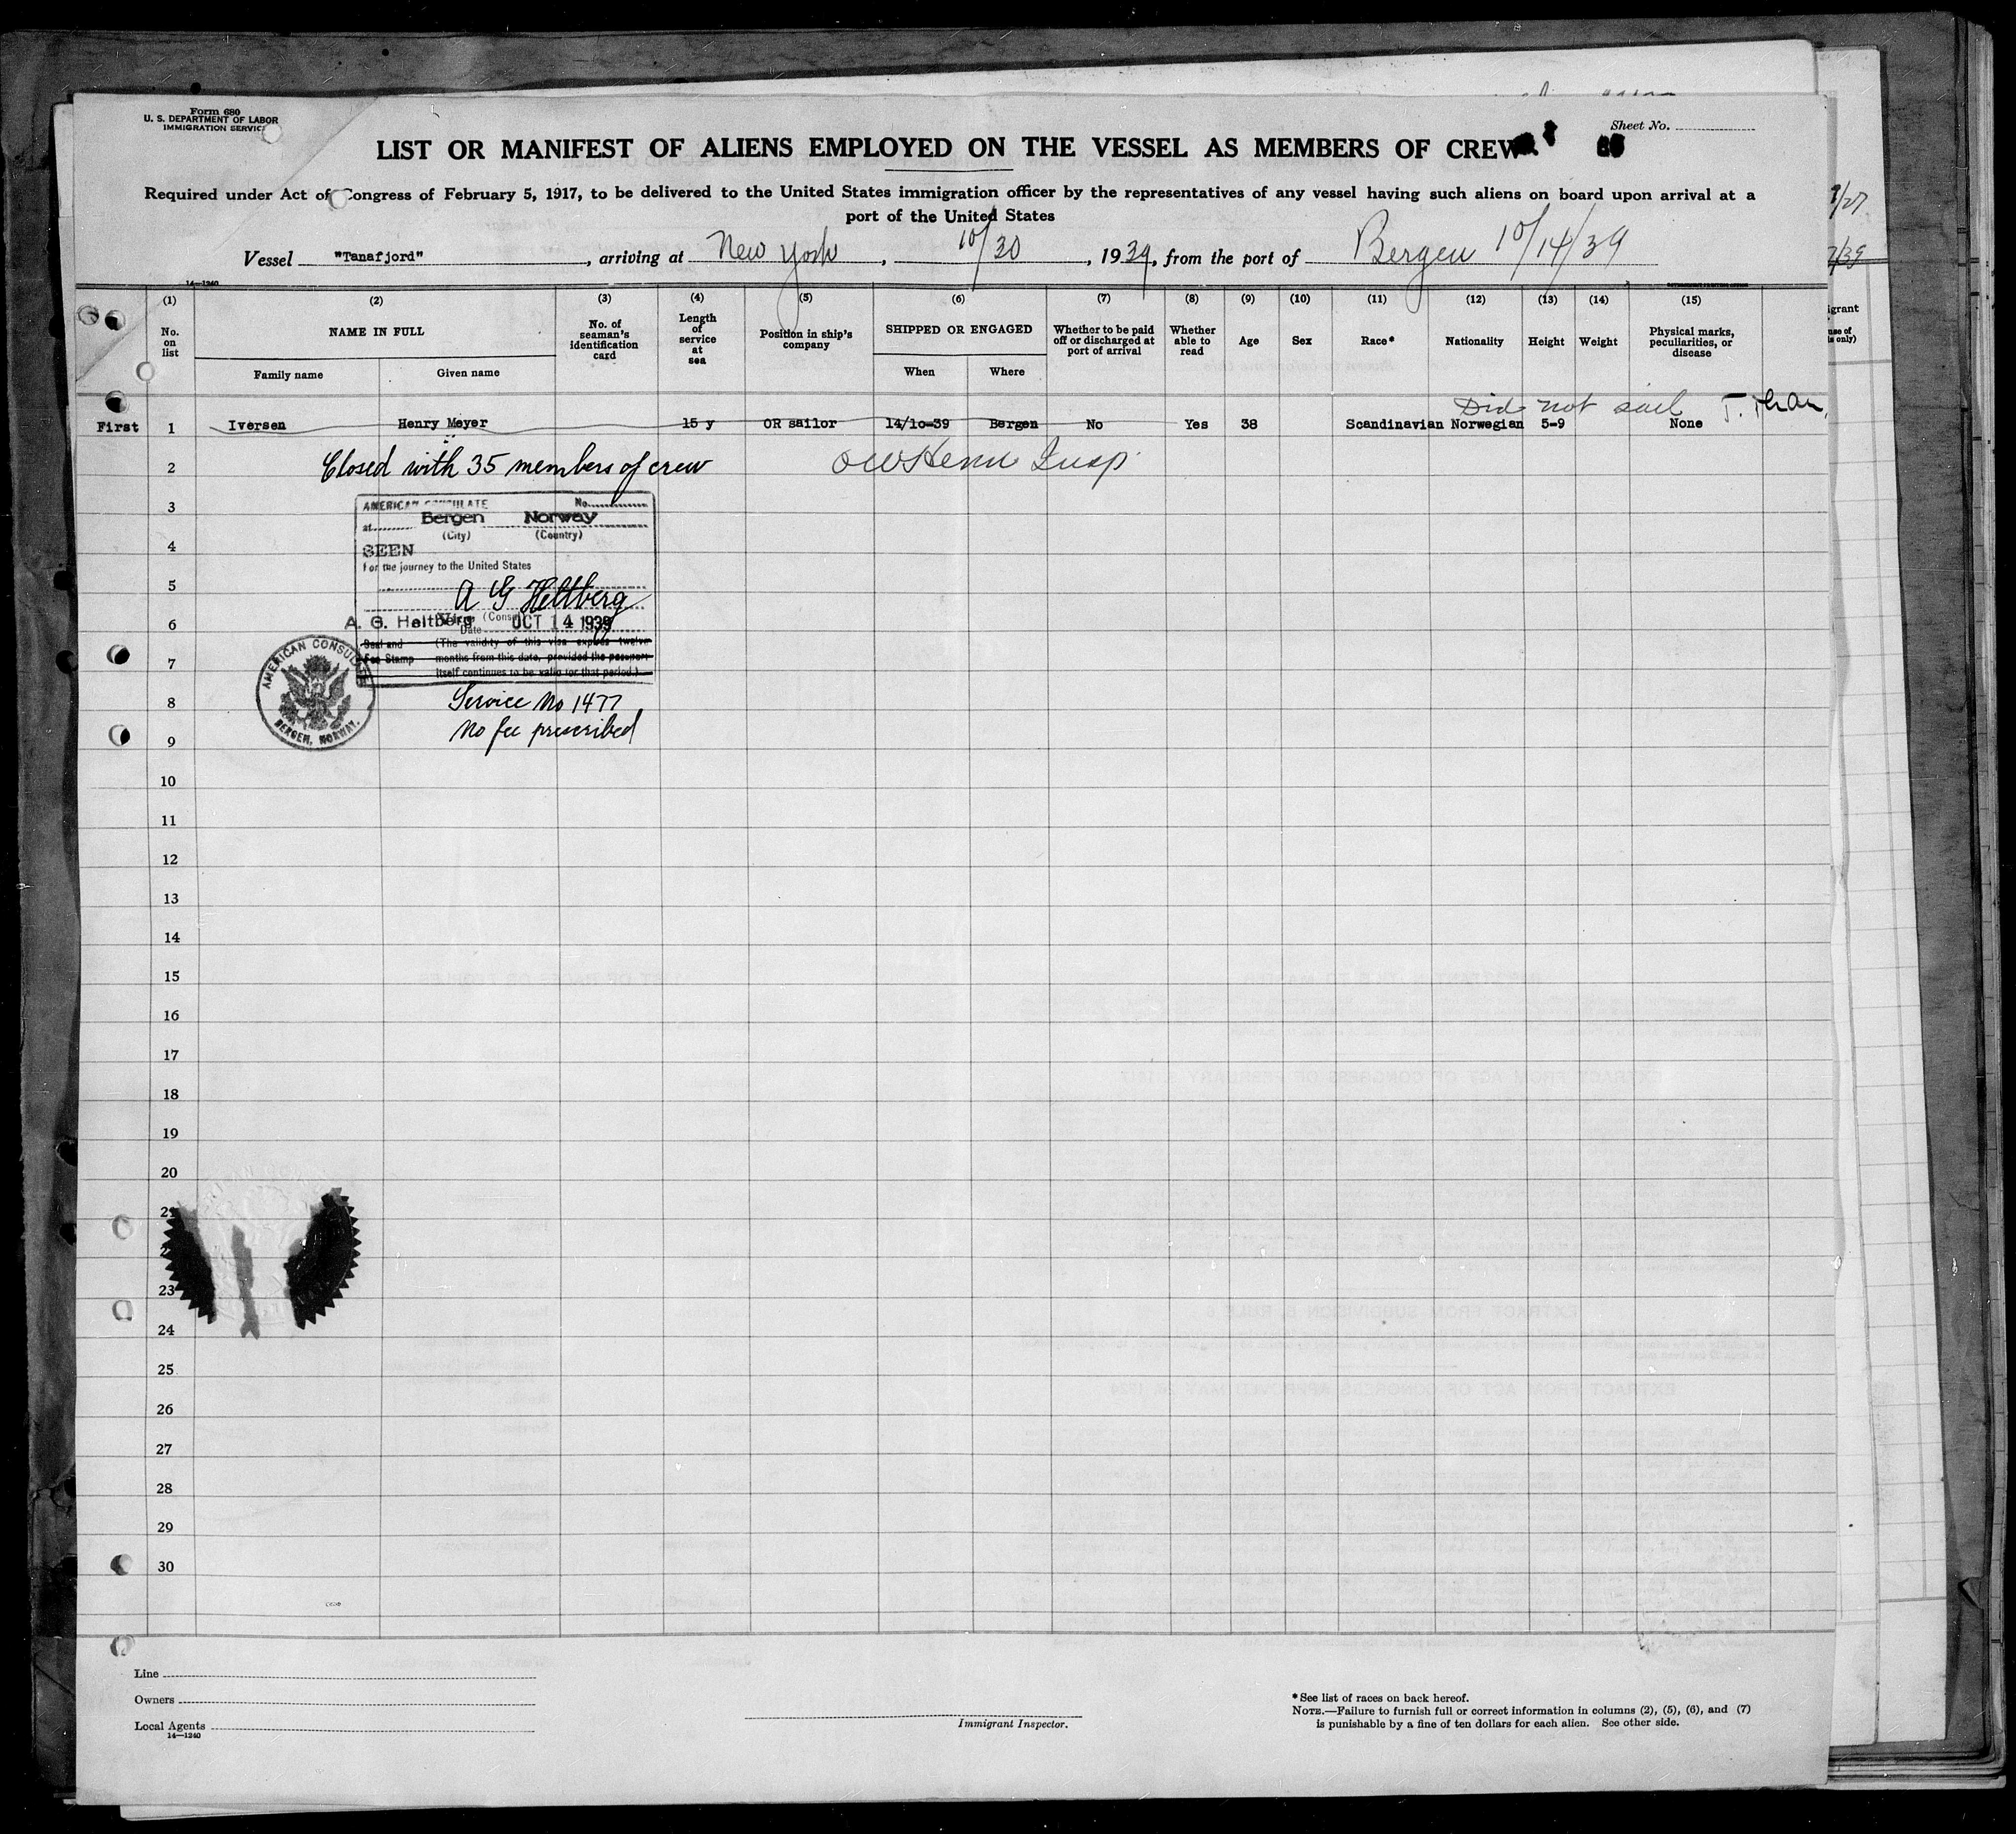 Form 680
U. S. DEPARTMENT OF LABOR
IMMIGRATION SERVICE
Sheet No.
LIST OR MANIFEST OF ALIENS EMPLOYED ON THE VESSEL AS MEMBERS OF CREW
Required under Act of Congress of February 5, 1917, to be delivered to the United States immigration officer by the representatives of any vessel having such aliens on board upon arrival at a
port of the United States
Vessel "Tanafjord", arriving at New York, 10/30, 1939, from the port of Bergen 10/14/39
14—1240
(1) (2) (3) (4) (5) (6) (7) (8) (9) (10) (11) (12) (13) (14) (15)
No. on list
NAME IN FULL
Family name Given name
No. of seaman's identification card
Length of service at sea
Position in ship's company
SHIPPED OR ENGAGED
When Where
Whether to be paid off or discharged at port of arrival
Whether able to read
Age
Sex
Race*
Nationality
Height
Weight
Physical marks, peculiarities, or disease
Did not sail
First 1 Iversen Henry Meyer 15 y OR sailor 14/10-39 Bergen No Yes 38 Scandinavian Norwegian 5-9 None
2 Closed with 35 members of crew
3
AMERICAN CONSULATE No.
at Bergen Norway
(City) (Country)
4
SEEN
For the journey to the United States
5
A G Heltberg
6
A. G. Heltberg Vice (Consul)
Date OCT 14 1939
Seal and (The validity of this visa expires twelve
Fee Stamp months from this date, provided the passport
itself continues to be valid for that period.)
7
AMERICAN CONSULATE
BERGEN, NORWAY.
8 Service No 1477
9 No fee prescribed
10
11
12
13
14
15
16
17
18
19
20
21
23
24
25
26
27
28
29
30
Line
Owners
Local Agents
14—1240
Immigrant Inspector.
*See list of races on back hereof.
NOTE.—Failure to furnish full or correct information in columns (2), (5), (6), and (7)
is punishable by a fine of ten dollars for each alien. See other side.